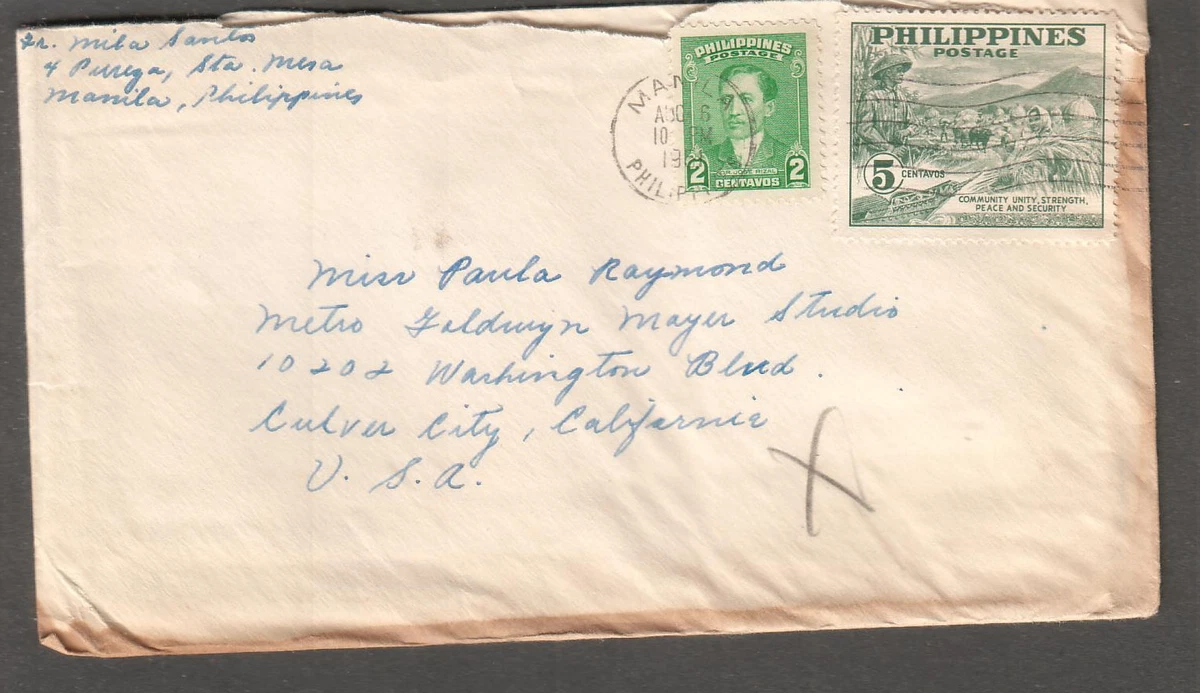 Fr. Mila Santos
4 Pureza, Sta. Mesa
Manila, Philippines
PHILIPPINES
POSTAGE
2 2
CENTAVOS
PHILIPPINES
POSTAGE
5 CENTAVOS
COMMUNITY UNITY, STRENGTH,
PEACE AND SECURITY
MANILA
6
10 PM
Miss Paula Raymond
Metro Goldwyn Mayer Studio
10202 Washington Blvd.
Culver City, California
U. S. A.
X